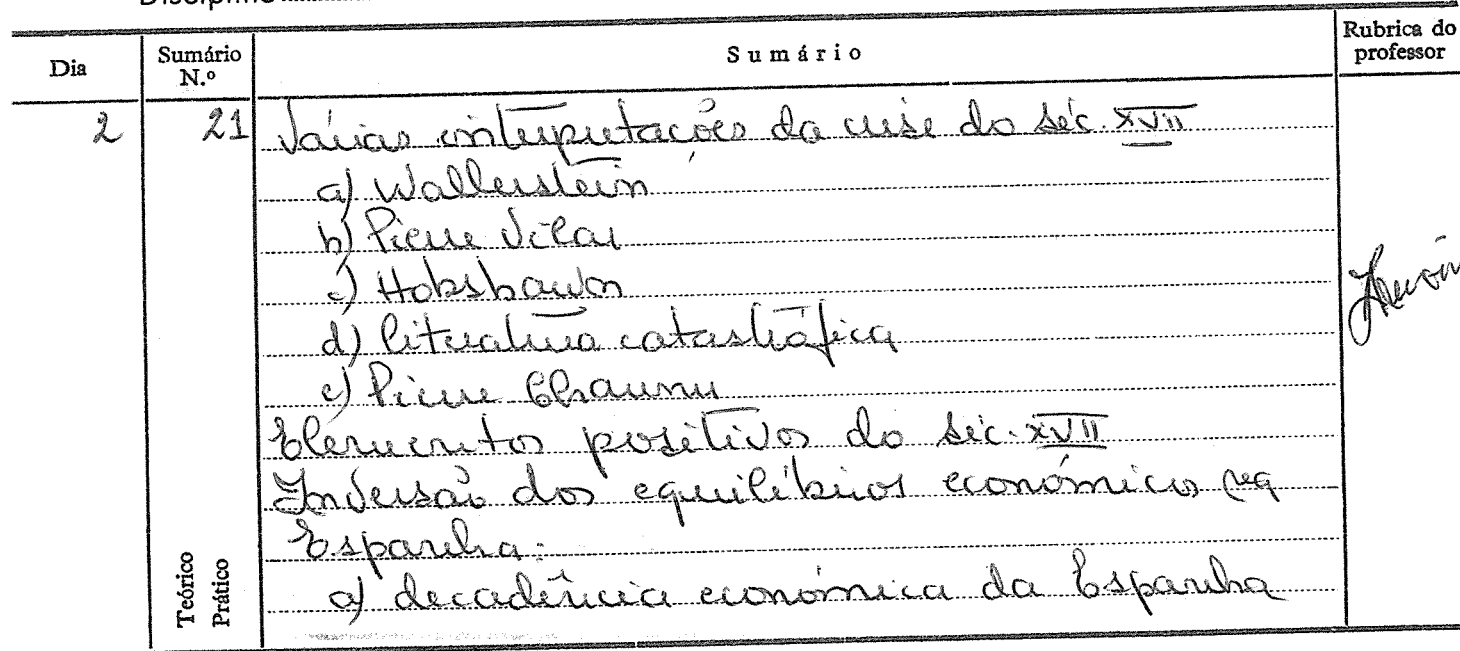 Dia Sumário N.º Sumário Rubrica do professor
2 21 Várias interpretações da crise do séc. XVII
a) Wallerstein
b) Pierre Vilar
c) Hobsbawm
d) literatura catastrófica
e) Pierre Chaunu
Elementos positivos do séc. XVII
Inversão dos equilíbrios económicos na
Espanha:
a) decadência económica da Espanha
Teórico
Prático